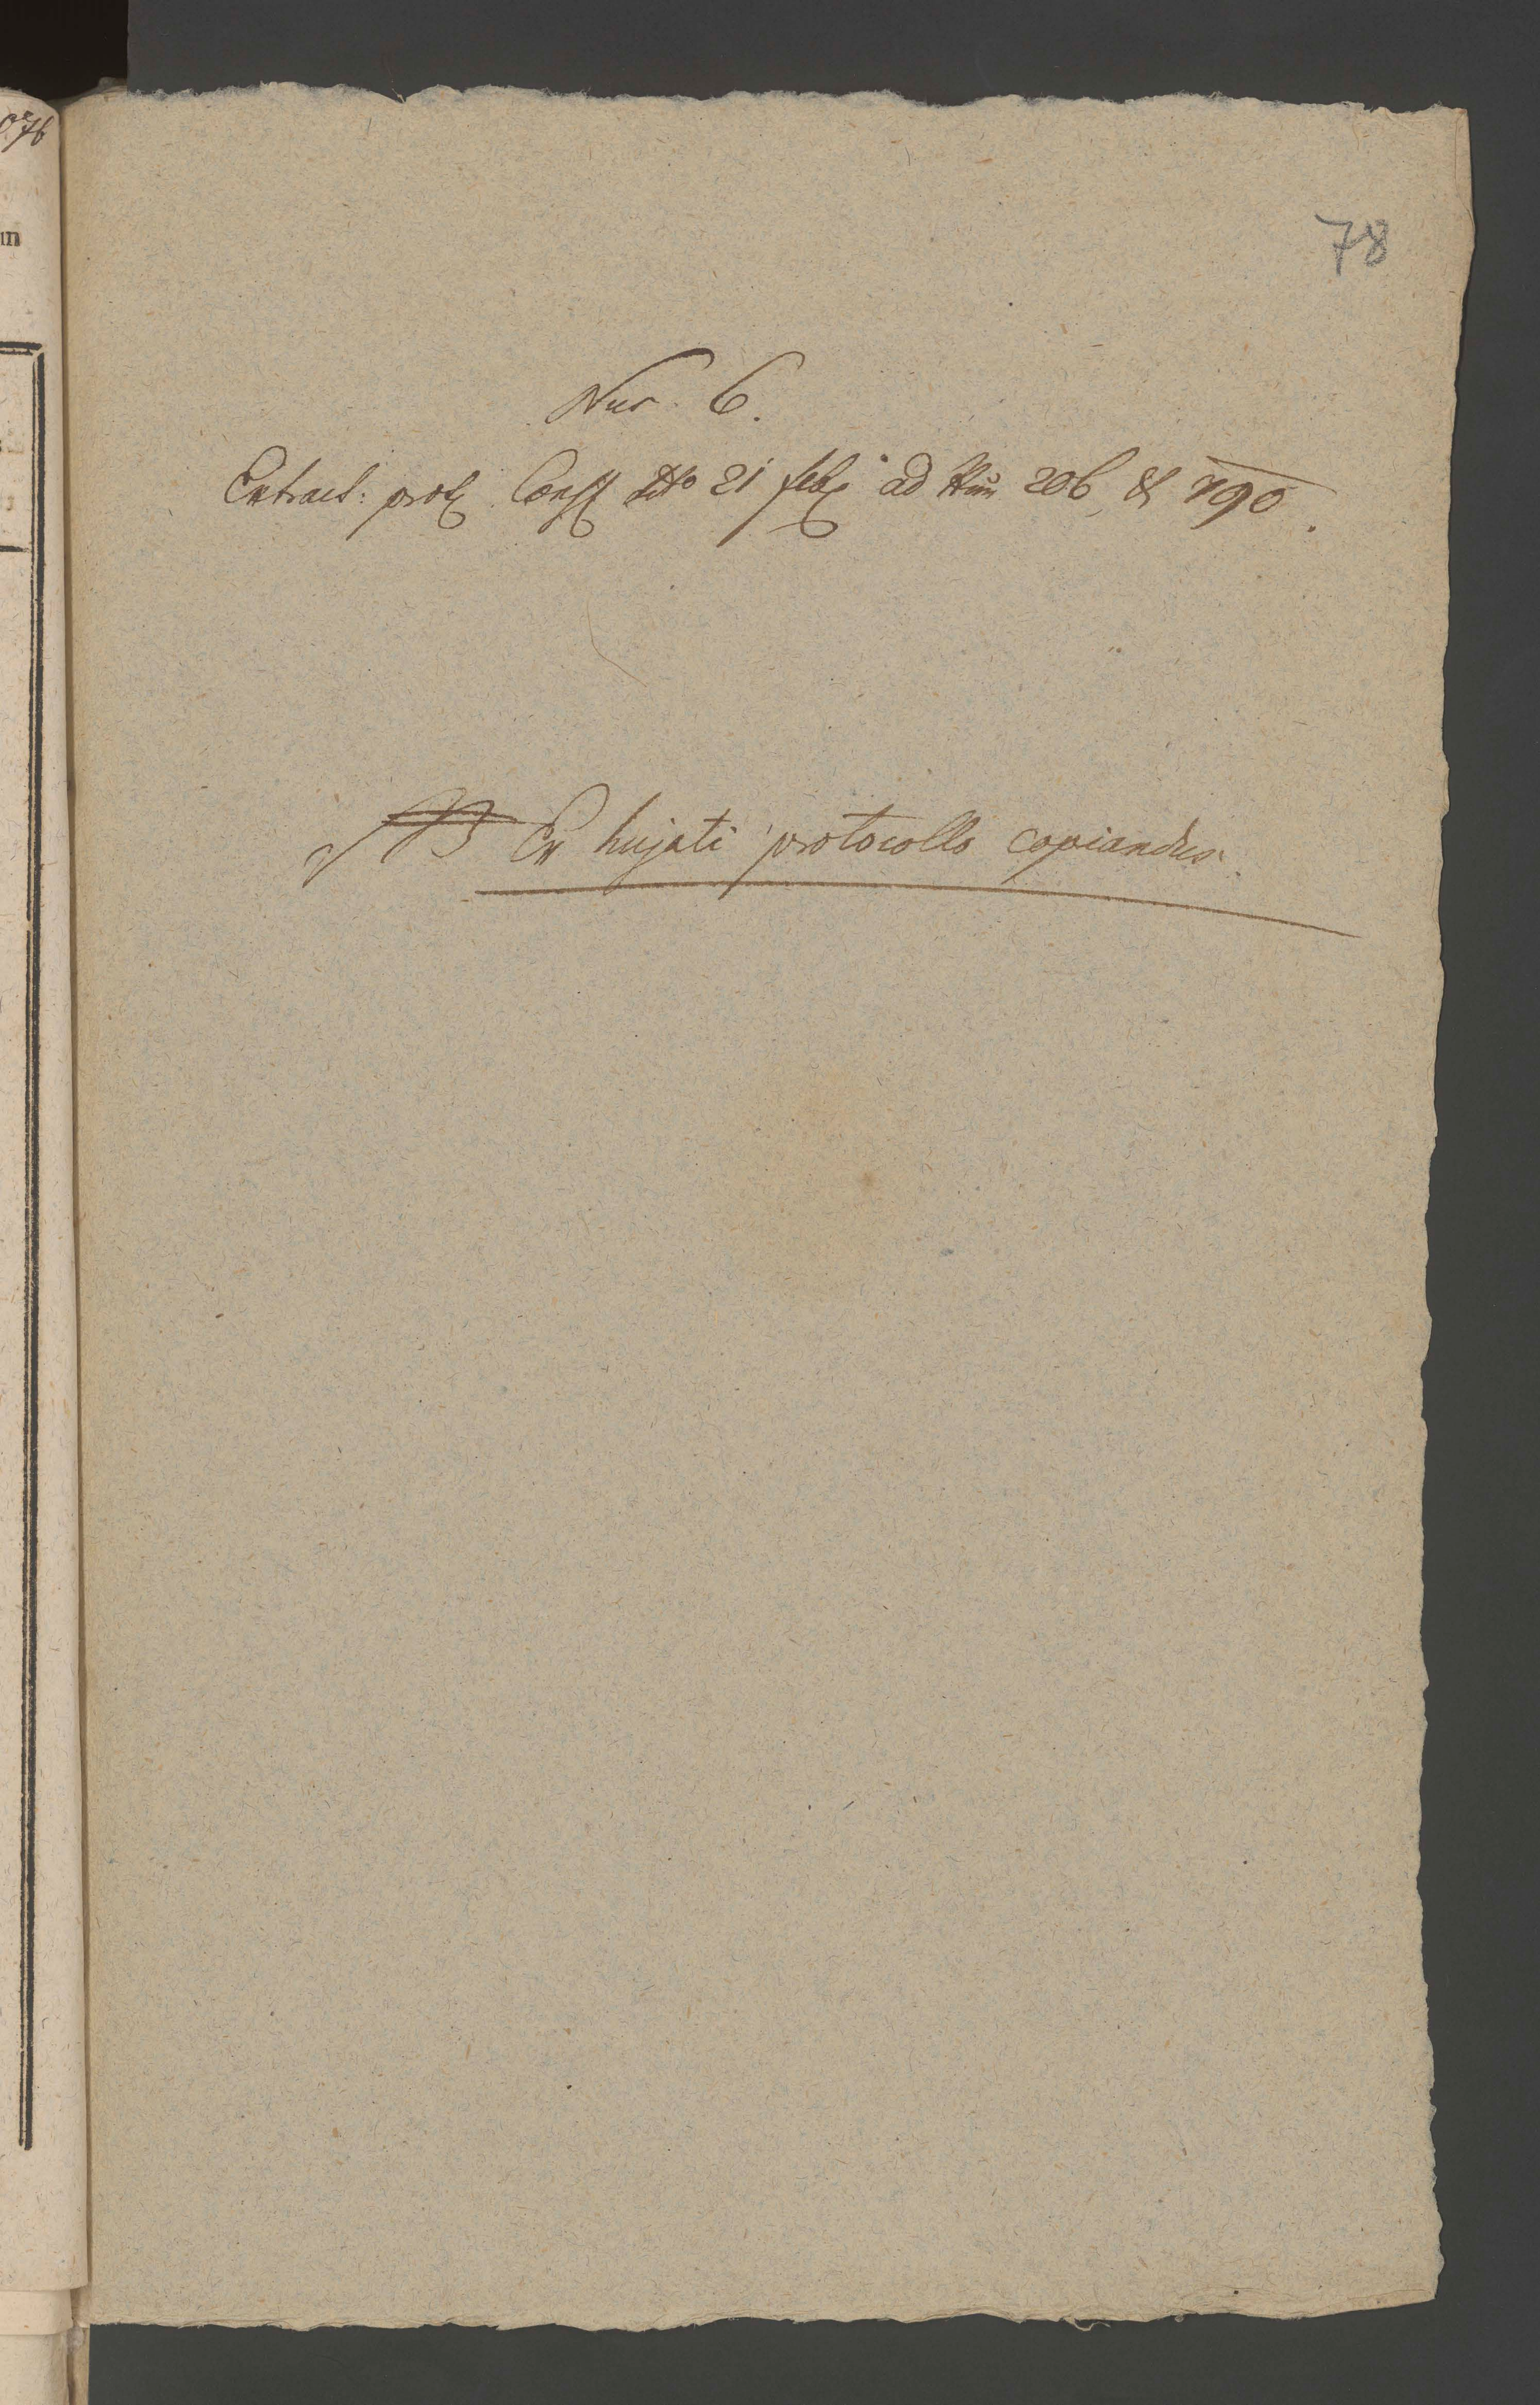 78
Nur. 6.
Extract: prot. Conss. ddto 21 feb. ad Num 206, & 790.
NB Ex hujati protocollo copiandus.